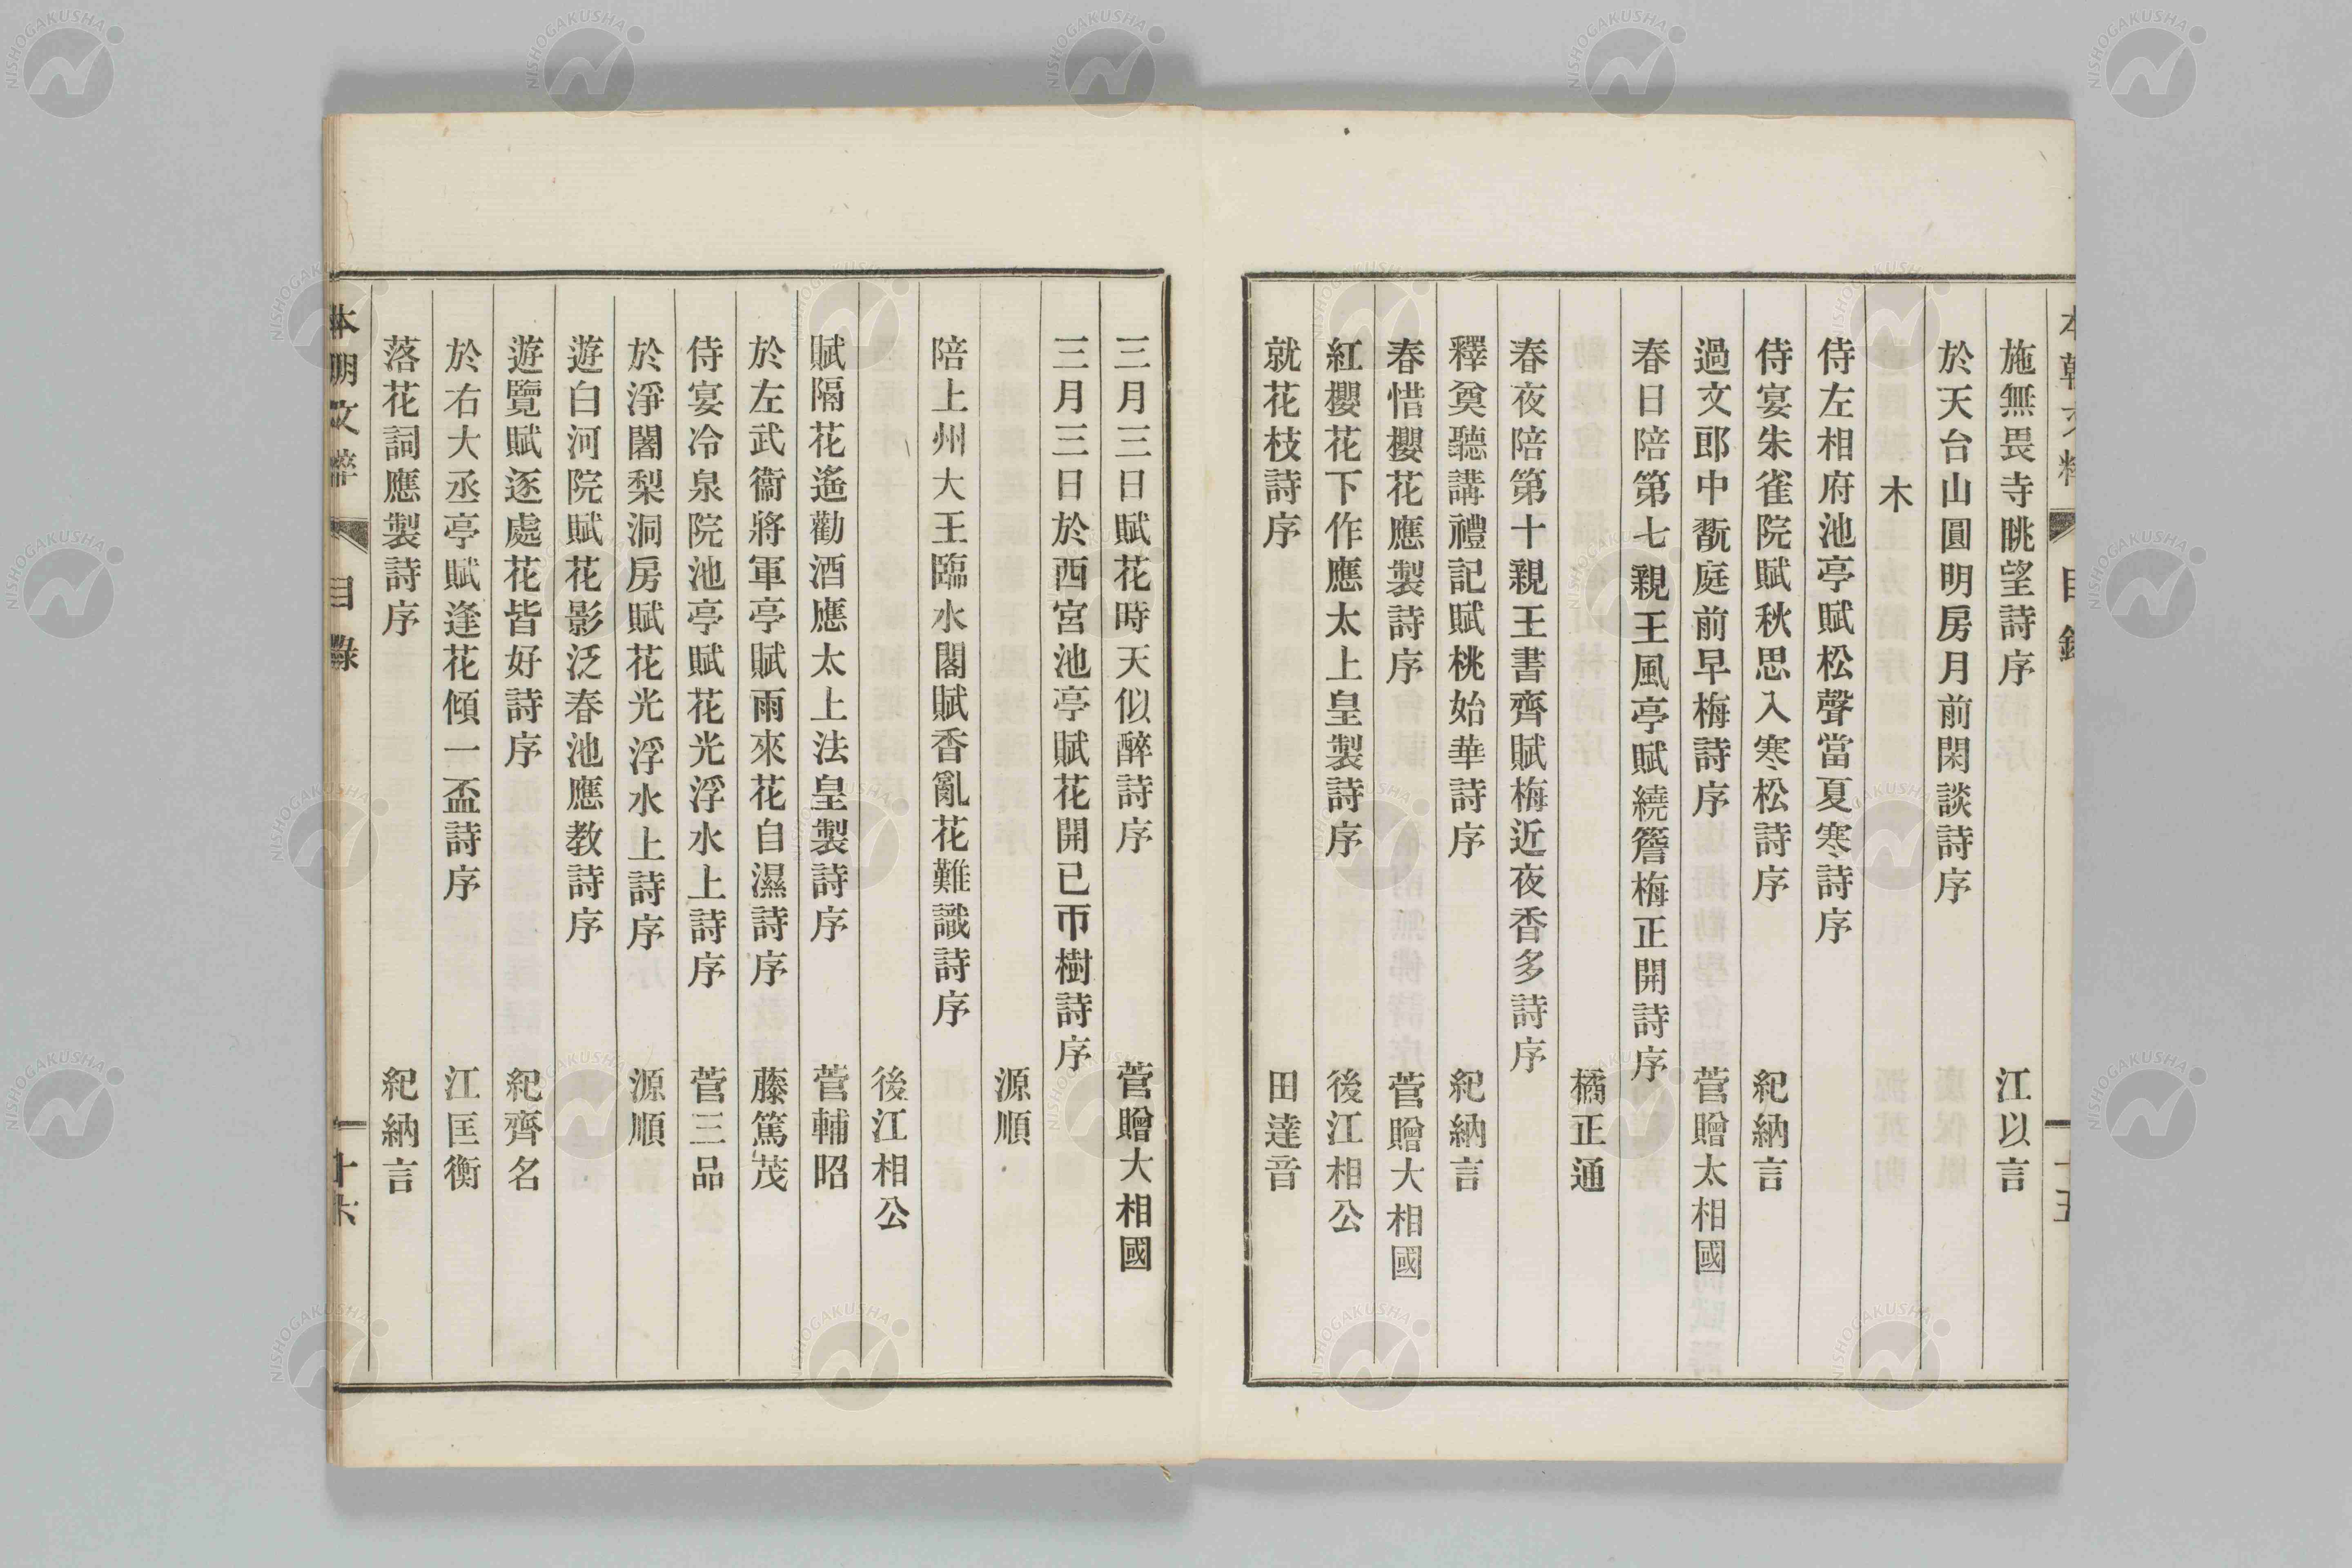 本朝文粹 目錄 十五
施無畏寺眺望詩序 江以言
於天台山圓明房月前閑談詩序
木
侍左相府池亭賦松聲當夏寒詩序
侍宴朱雀院賦秋思入寒松詩序 紀納言
過文郎中翫庭前早梅詩序 菅贈太相國
春日陪第七親王風亭賦繞簷梅正開詩序
橘正通
春夜陪第十親王書齊賦梅近夜香多詩序
釋奠聽講禮記賦桃始華詩序 紀納言
春惜櫻花應製詩序 菅贈大相國
紅櫻花下作應太上皇製詩序 後江相公
就花枝詩序 田達音
三月三日賦花時天似醉詩序 菅贈大相國
三月三日於西宮池亭賦花開已帀樹詩序
源順
陪上州大王臨水閣賦香亂花難識詩序
後江相公
賦隔花遙勸酒應太上法皇製詩序 菅輔昭
於左武衞將軍亭賦雨來花自濕詩序 藤篤茂
侍宴冷泉院池亭賦花光浮水上詩序 菅三品
於淨闍梨洞房賦花光浮水上詩序 源順
遊白河院賦花影泛春池應教詩序
遊覽賦逐處花皆好詩序 紀齊名
於右大丞亭賦逢花傾一盃詩序 江匡衡
落花詞應製詩序 紀納言
本朝文粹 目錄 十六
NISHOGAKUSHA